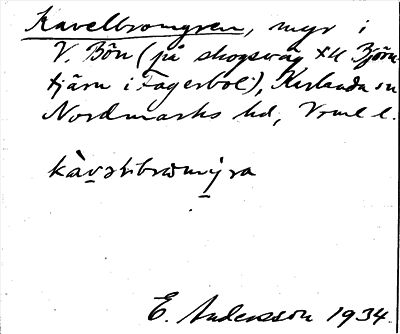 Kavelbromyren, myr i
V. Bön (på skogsväg t. Björn-
tjärn i Fagerbol), Karlanda sn
Nordmarks hd, Vrml l.
E. Andersson 1934.